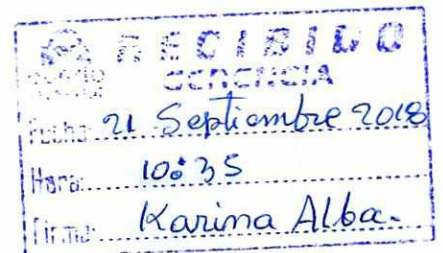 RECIBIDO
GERENCIA
Fecha: 21 Septiembre 2018
Hora: 10:35
Firma: Karina Alba.